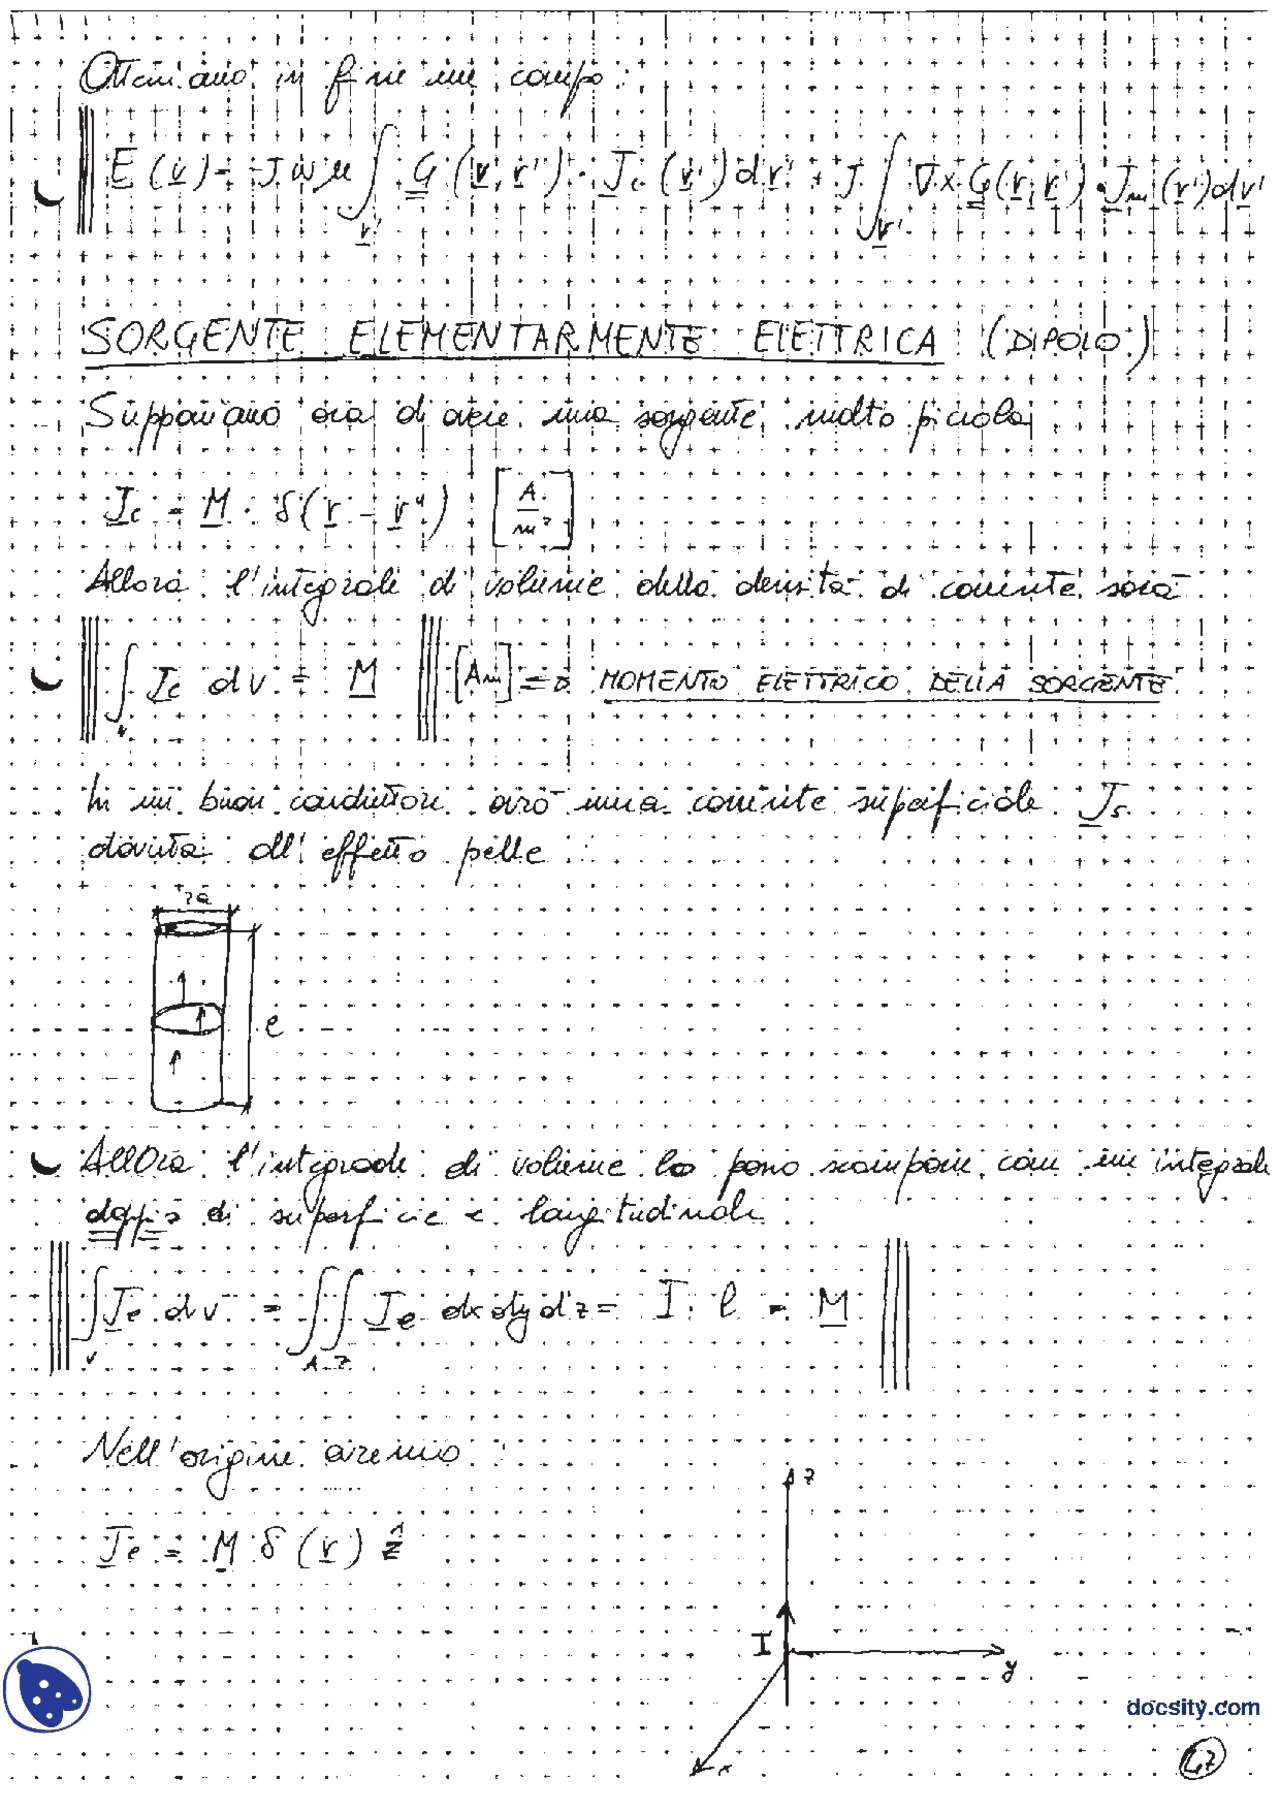 Otteniamo in fine un campo:
E(r) = -Jωμ ∫_r' G(r, r') · J_c(r') dr' + J ∫_r' ∇×G(r, r') · J_m(r') dr'
SORGENTE ELEMENTARMENTE ELETTRICA (DIPOLO)
Supponiamo ora di avere una sorgente molto piccola
J_c = M · δ(r - r') [A/m²]
Allora l'integrale di volume della densità di corrente sarà
∫_v J_c dv = M [Am] => MOMENTO ELETTRICO DELLA SORGENTE
In un buon conduttore avrò una corrente superficiale J_s
dovuta all'effetto pelle:
2a
l
Allora l'integrale di volume lo posso scomporre con un integrale
doppio di superficie e longitudinale
∫_v J_e dv = ∫_A ∫_z J_e dx dy dz = I · l = M
Nell'origine avremo:
J_e = M δ(r) ẑ
z
I
y
x
docsity.com
47